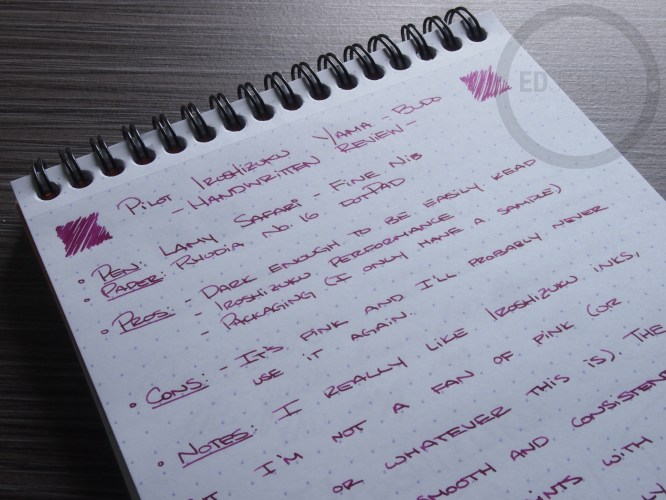 Pilot Iroshizuku Yama-Budo
- Handwritten Review -
• Pen: Lamy Safari - Fine Nib
• Paper: Rhodia No. 16 dotPad
• Pros: - Dark enough to be easily read
- Iroshizuku performance
- Packaging (I only have a sample)
• Cons: - It's pink and I'll probably never
use it again.
• Notes: I really like Iroshizuku inks,
I'm not a fan of pink (or
or whatever this is). The
smooth and consistent
with
ED